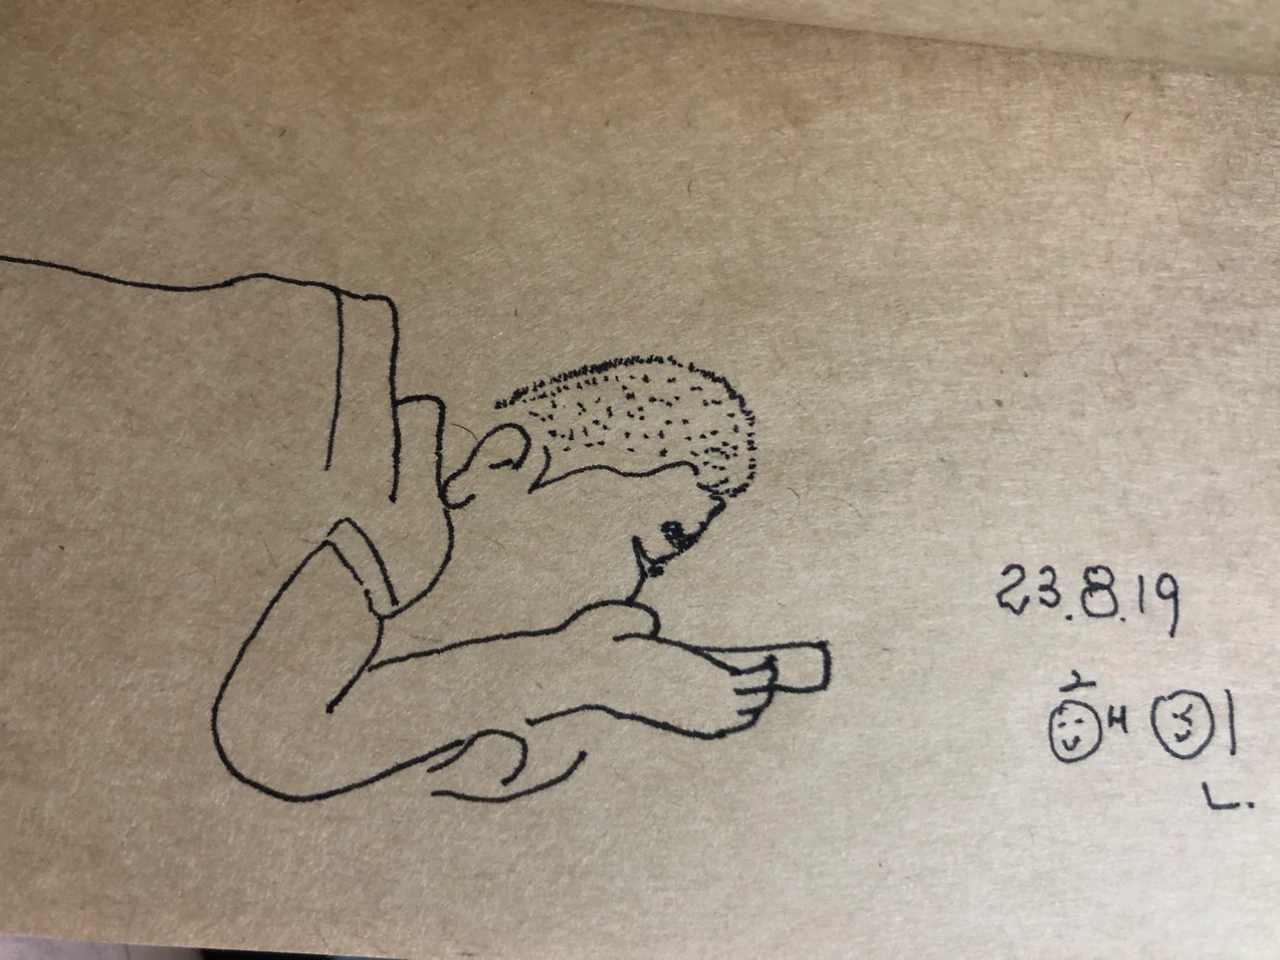 23.8.19
해인.